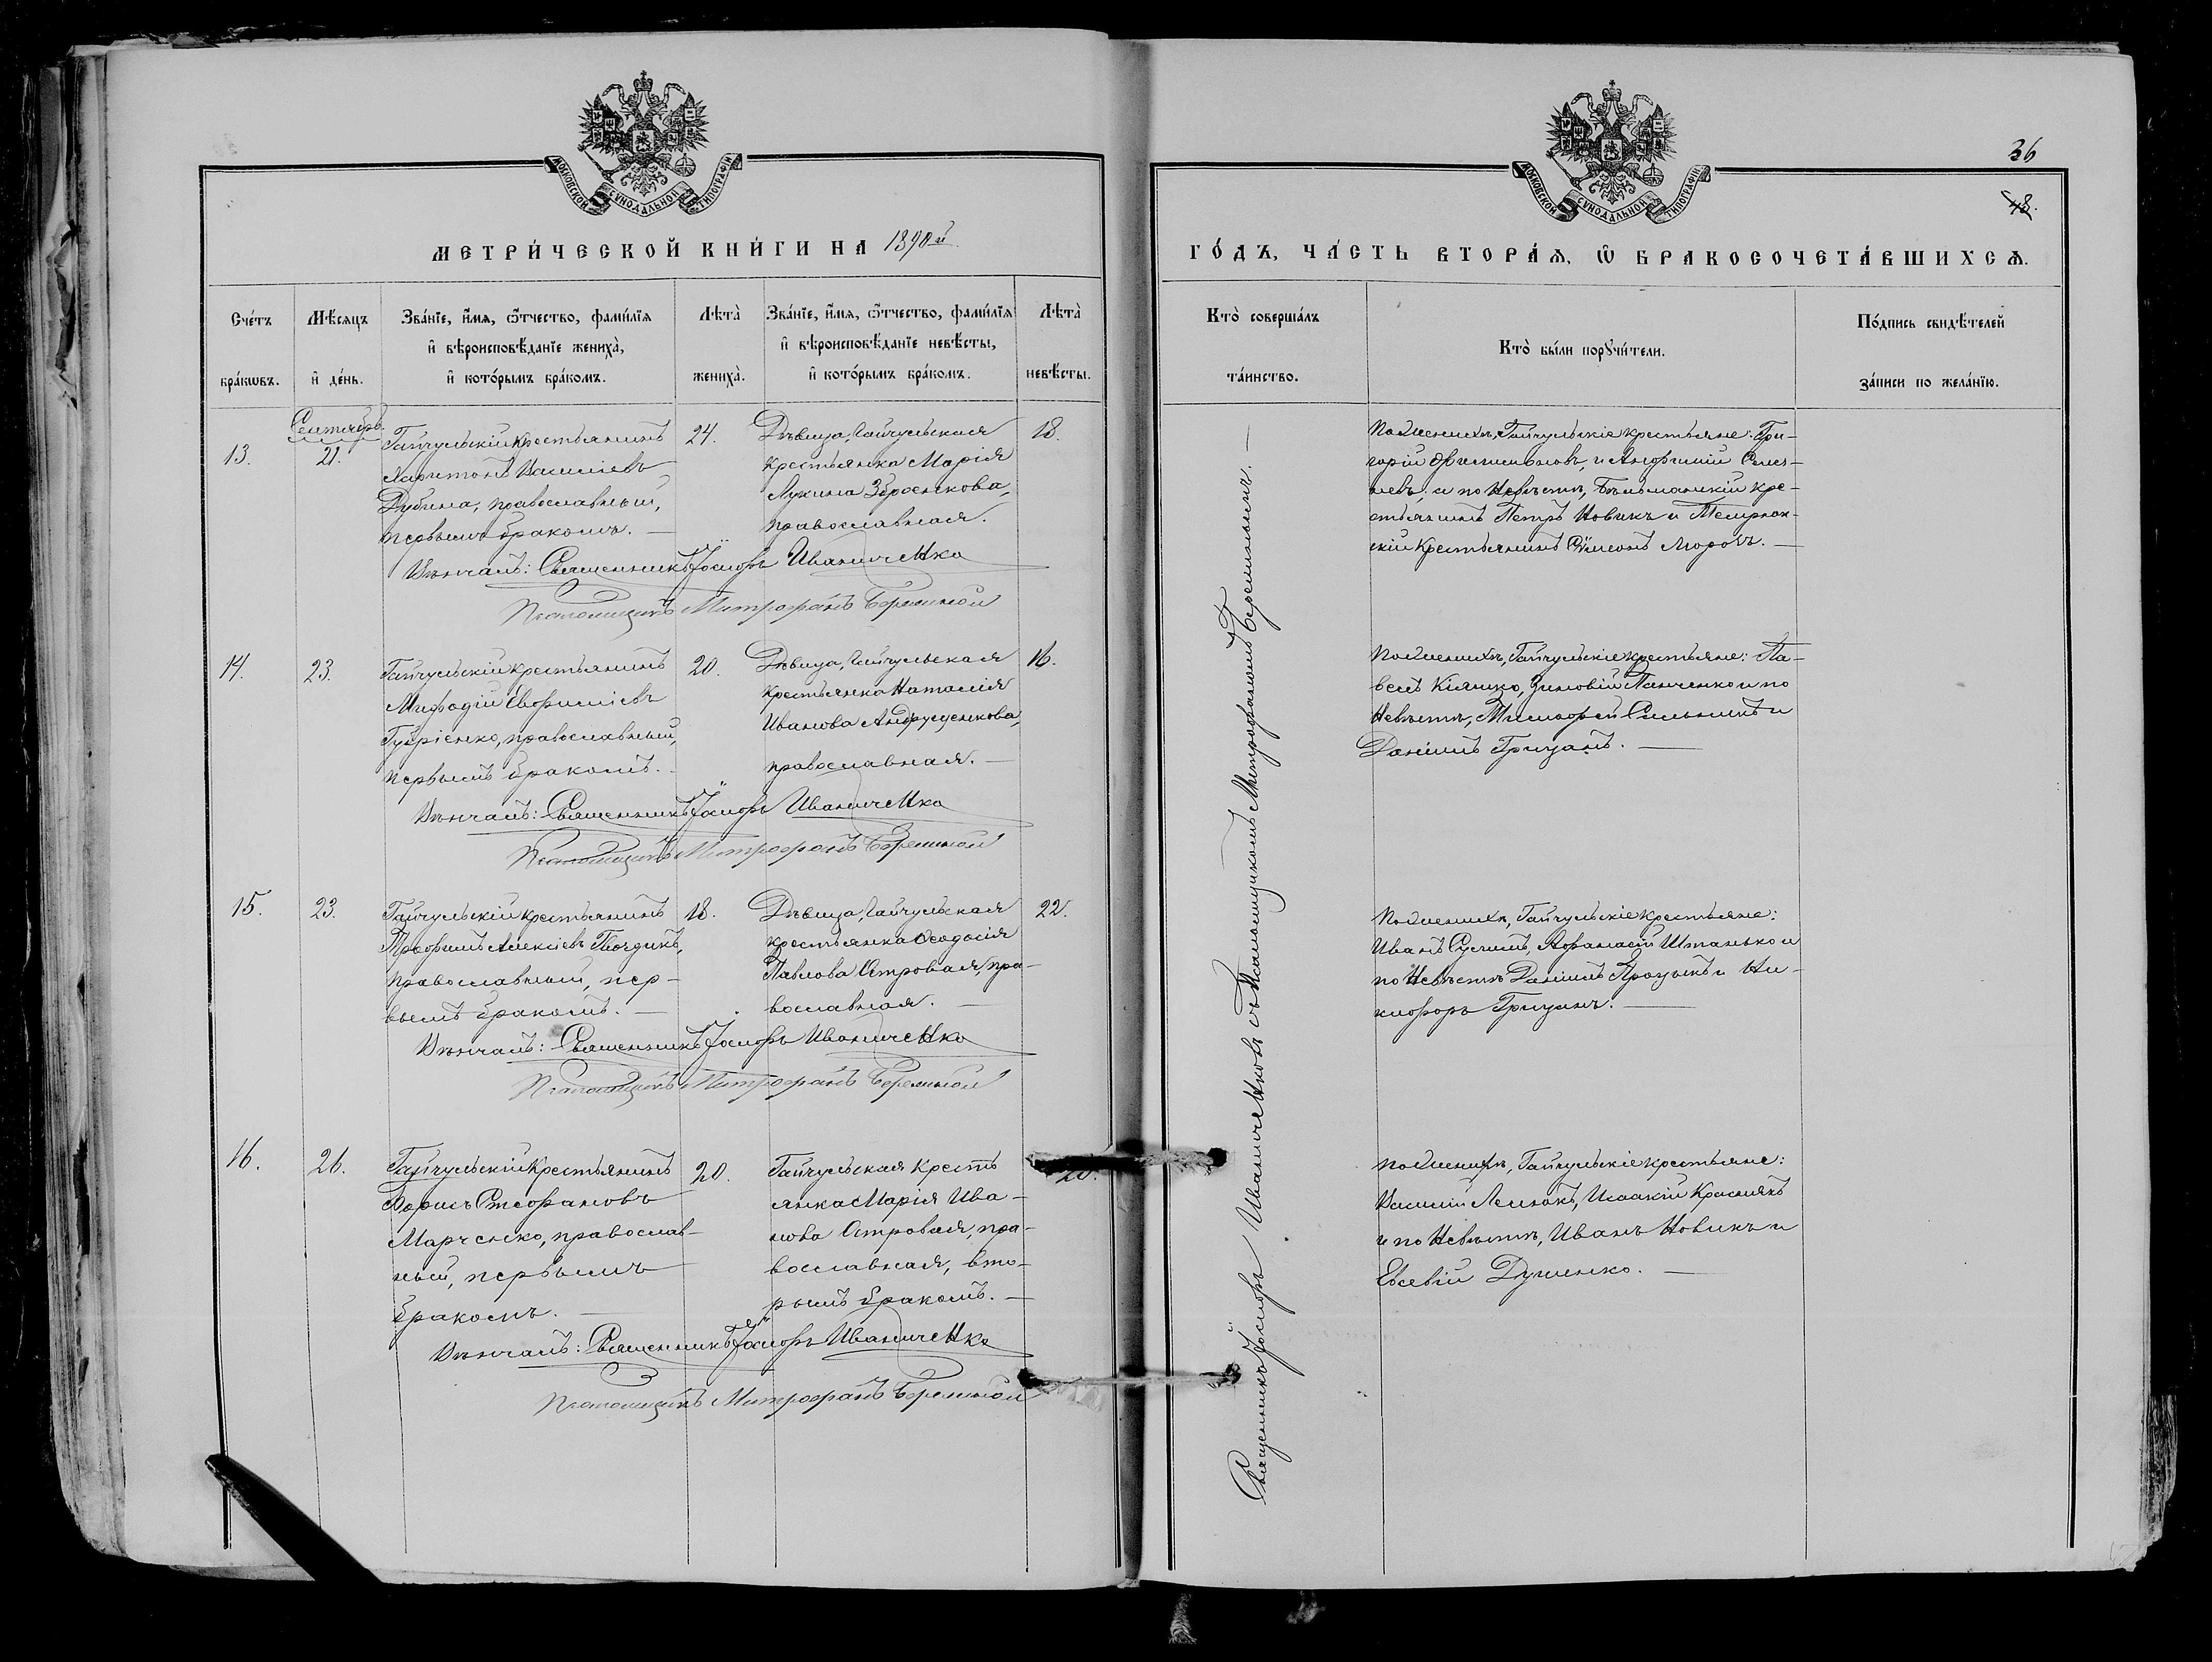 МОСКОВСКОЙ СѴНОДАЛЬНОЙ ТИПОГРАФІИ
МЕТРИ́ЧЕСКОЙ КНИ́ГИ НА 1890 й
Сче́тъ бра́кωвъ.
Мѣ́сяцъ и҆ де́нь.
Зва́нїе, и҆́мѧ, ѻ҆́тчество, фами́лїѧ
и҆ вѣроисповѣ́данїе жениха̀,
и҆ кото́рымъ бра́комъ.
Лѣта̀ жениха̀.
Зва́нїе, и҆́мѧ, ѻ҆́тчество, фами́лїѧ
и҆ вѣроисповѣ́данїе невѣ́сты,
и҆ кото́рымъ бра́комъ.
Лѣта̀ невѣ́сты.
Сентябрь.
13.
21.
Гайчульскій крестьянинъ
Харитонъ Василіевъ
Дубина, православный,
первымъ бракомъ. —
24.
Дѣвица, Гайчульская
крестьянка Марія
Лукина Зброенкова,
православная.
18.
Вѣнчалъ: Священникъ Іосифъ Иваниченко
Псаломщикъ Митрофанъ
14.
23.
Гайчульскій крестьянинъ
Мифодій Евфиміевъ
православный,
первымъ бракомъ. —
20.
Дѣвица, Гайчульская
крестьянка Наталія
Иванова Андрущенкова,
православная. —
16.
Вѣнчалъ: Священникъ Іосифъ Иваниченко
Псаломщикъ Митрофанъ
15.
23.
Гайчульскій крестьянинъ
Трофимъ Алексіевъ Гвоздикъ,
православный, пер-
вымъ бракомъ. —
18.
Дѣвица, Гайчульская
крестьянка Ѳеодосія
Павлова Островая, пра-
вославная. —
22.
Вѣнчалъ: Священникъ Іосифъ Иваниченко
Псаломщикъ Митрофанъ
16.
26.
Гайчульскій крестьянинъ
Борисъ Стефановъ
Марченко, православ-
ный, первымъ
бракомъ. —
20.
Гайчульская кресть
янка Марія Ива-
нова Островая, пра-
вославная, вто-
рымъ бракомъ. —
20.
Вѣнчалъ: Священникъ Іосифъ Иваниченко
Псаломщикъ Митрофанъ
36
48.
МОСКОВСКОЙ СѴНОДАЛЬНОЙ ТИПОГРАФІИ
ГО́ДЪ, ЧА́СТЬ ВТОРА́Ѧ, Ѽ БРАКОСОЧЕТА́ВШИХСѦ.
Кто̀ соверша́лъ
та́инство.
Кто̀ бы́ли порꙋчи́тели.
По́дпись свидѣ́телей
за́писи по жела́нїю.
Священникъ Іосифъ Иваниченковъ съ Псаломщикомъ Митрофаномъ
По женихѣ, Гайчульскіе крестьяне: Гри-
горій Филимоновъ, и
и по невѣстѣ, кре-
стьянинъ Петръ Новикъ и Темрюк-
скій крестьянинъ Симеонъ Морозъ. —
По женихѣ, Гайчульскіе крестьяне: Па-
велъ Кіяшко, Зиновій Панченко и по
невѣстѣ, Тимофей и
Даніилъ Грицай. —
По женихѣ, Гайчульскіе крестьяне:
Иванъ Афанасій Штанько и
по невѣстѣ Даніилъ Яроцикъ и Ни-
кифоръ Грицинъ. —
По женихѣ, Гайчульскіе крестьяне:
Василій Исаакій
и по невѣстѣ, Иванъ Новикъ и
Евсевій Душенко. —